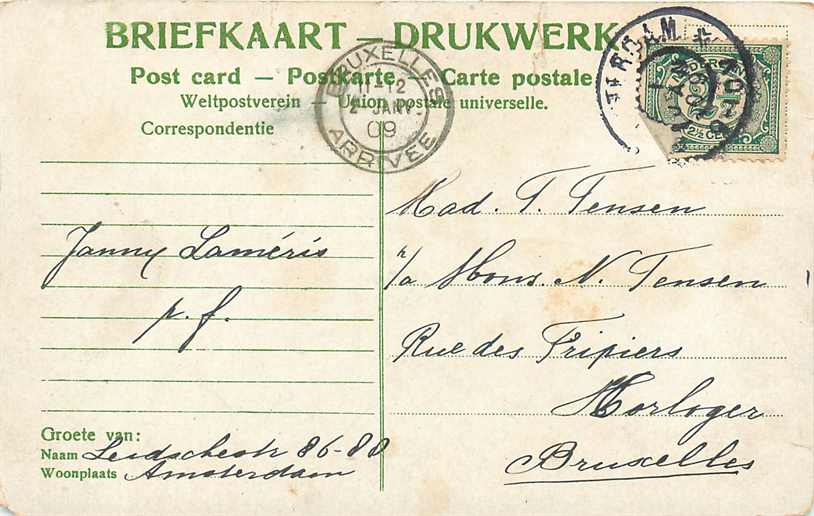 BRIEFKAART — DRUKWERK
Post card — Postkarte — Carte postale
Weltpostverein — Union postale universelle.
Correspondentie
BRUXELLES
11-12
2 JANV.
09
ARRIVEE
2½ CENT
Mad. T. Tensen
Mons. N. Tensen
Rue des Fripiers
Horloger
Bruxelles
Janny Laméris
p. f.
Groete van:
Naam Leidschestr 86-88
Woonplaats Amsterdam